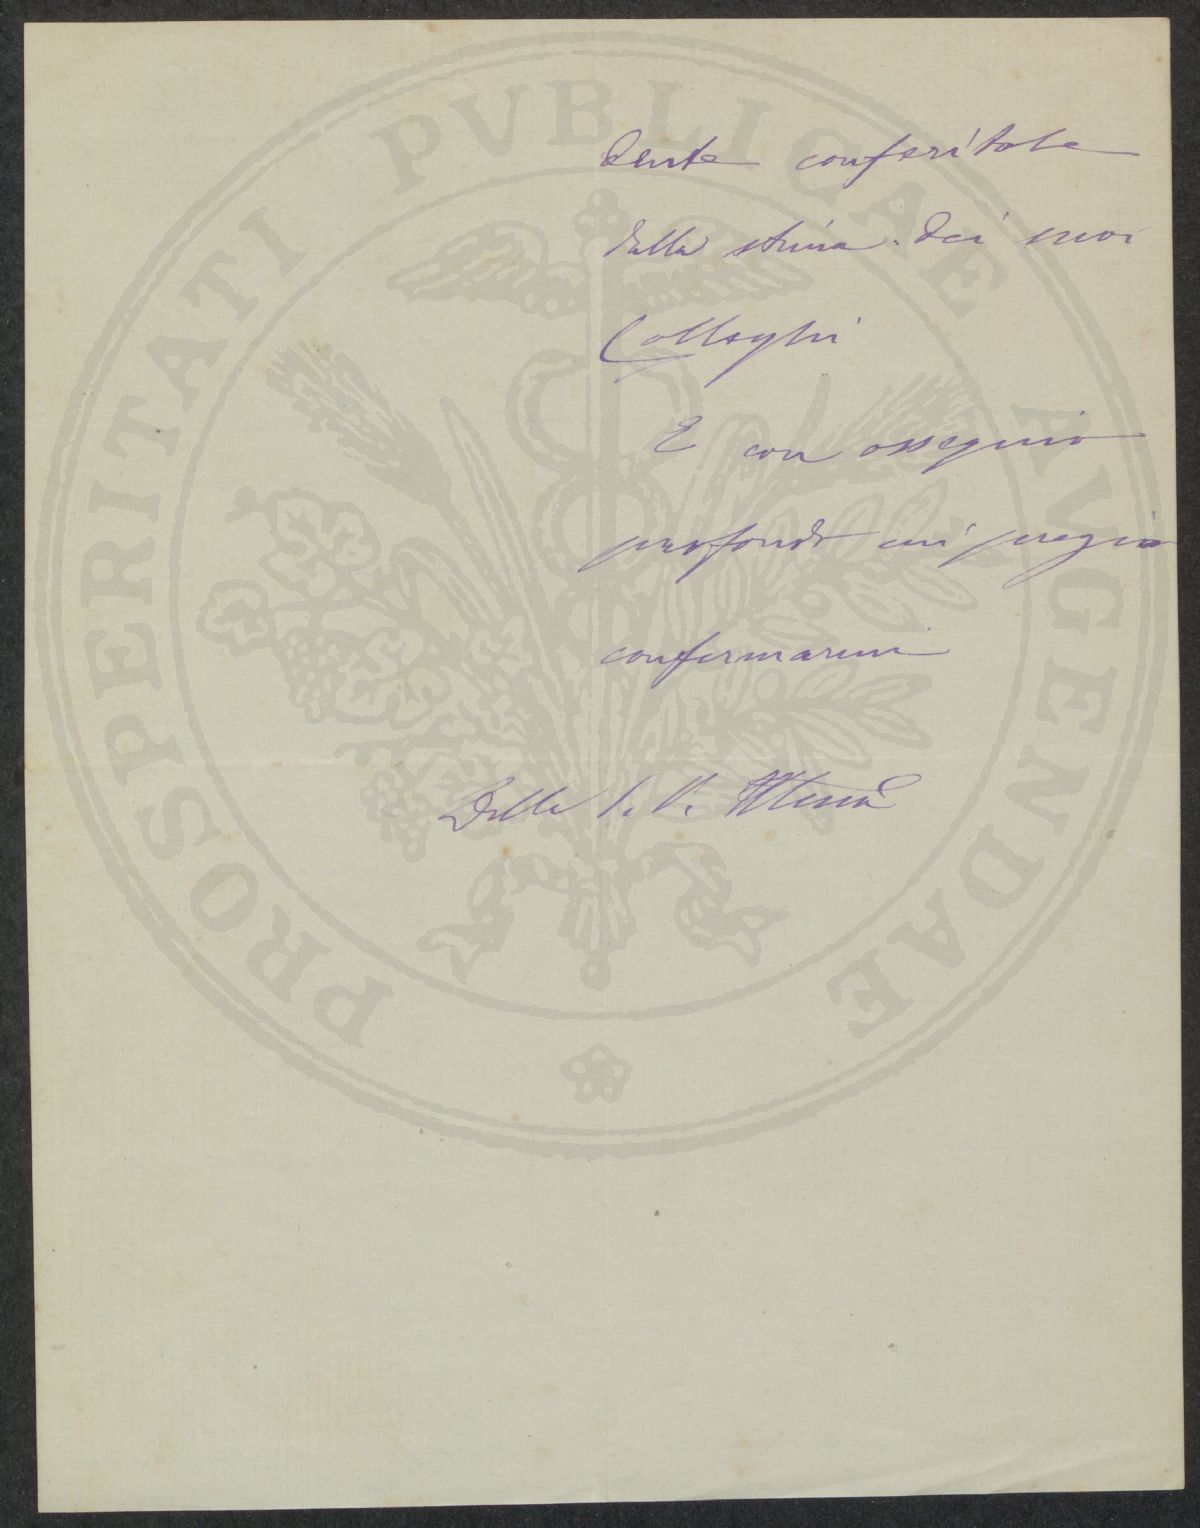 dente conferitole
dalla stima dei suoi
Colleghi
E con ossequio
profondo mi pregio
confermarmi
Della S. V. Ill.ma
PROSPERITATI PVBLICAE AVGENDAE